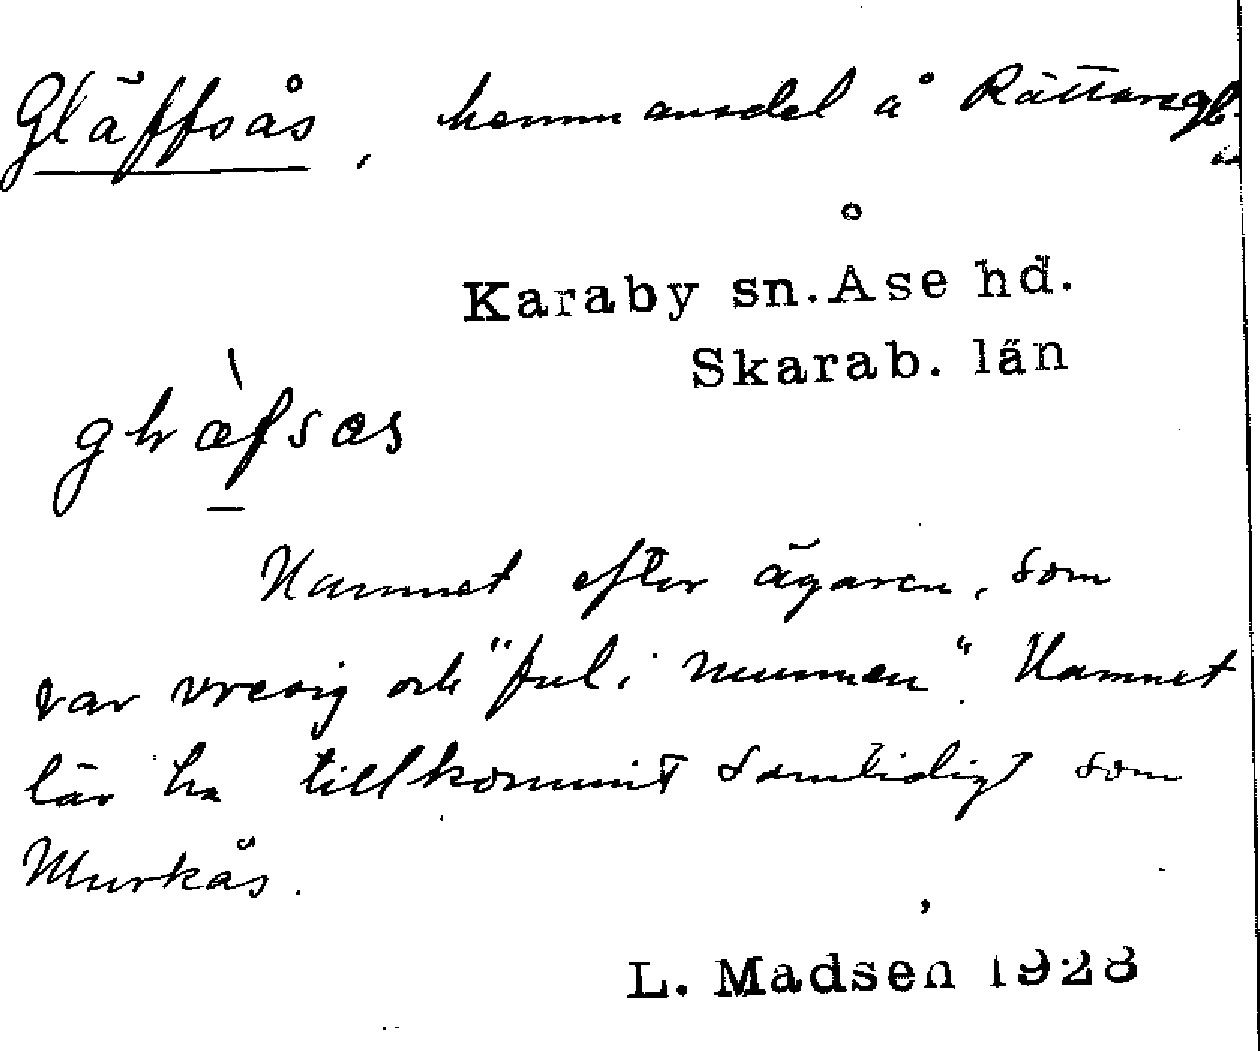 Gläffsås, hemmansdel å
Karaby sn. Åse hd.
Skarab. län
Namnet efter ägaren, som
var vresig och "ful i munnen". Namnet
lär ha tillkommit samtidigt som
Murkås.
L. Madsen 1928